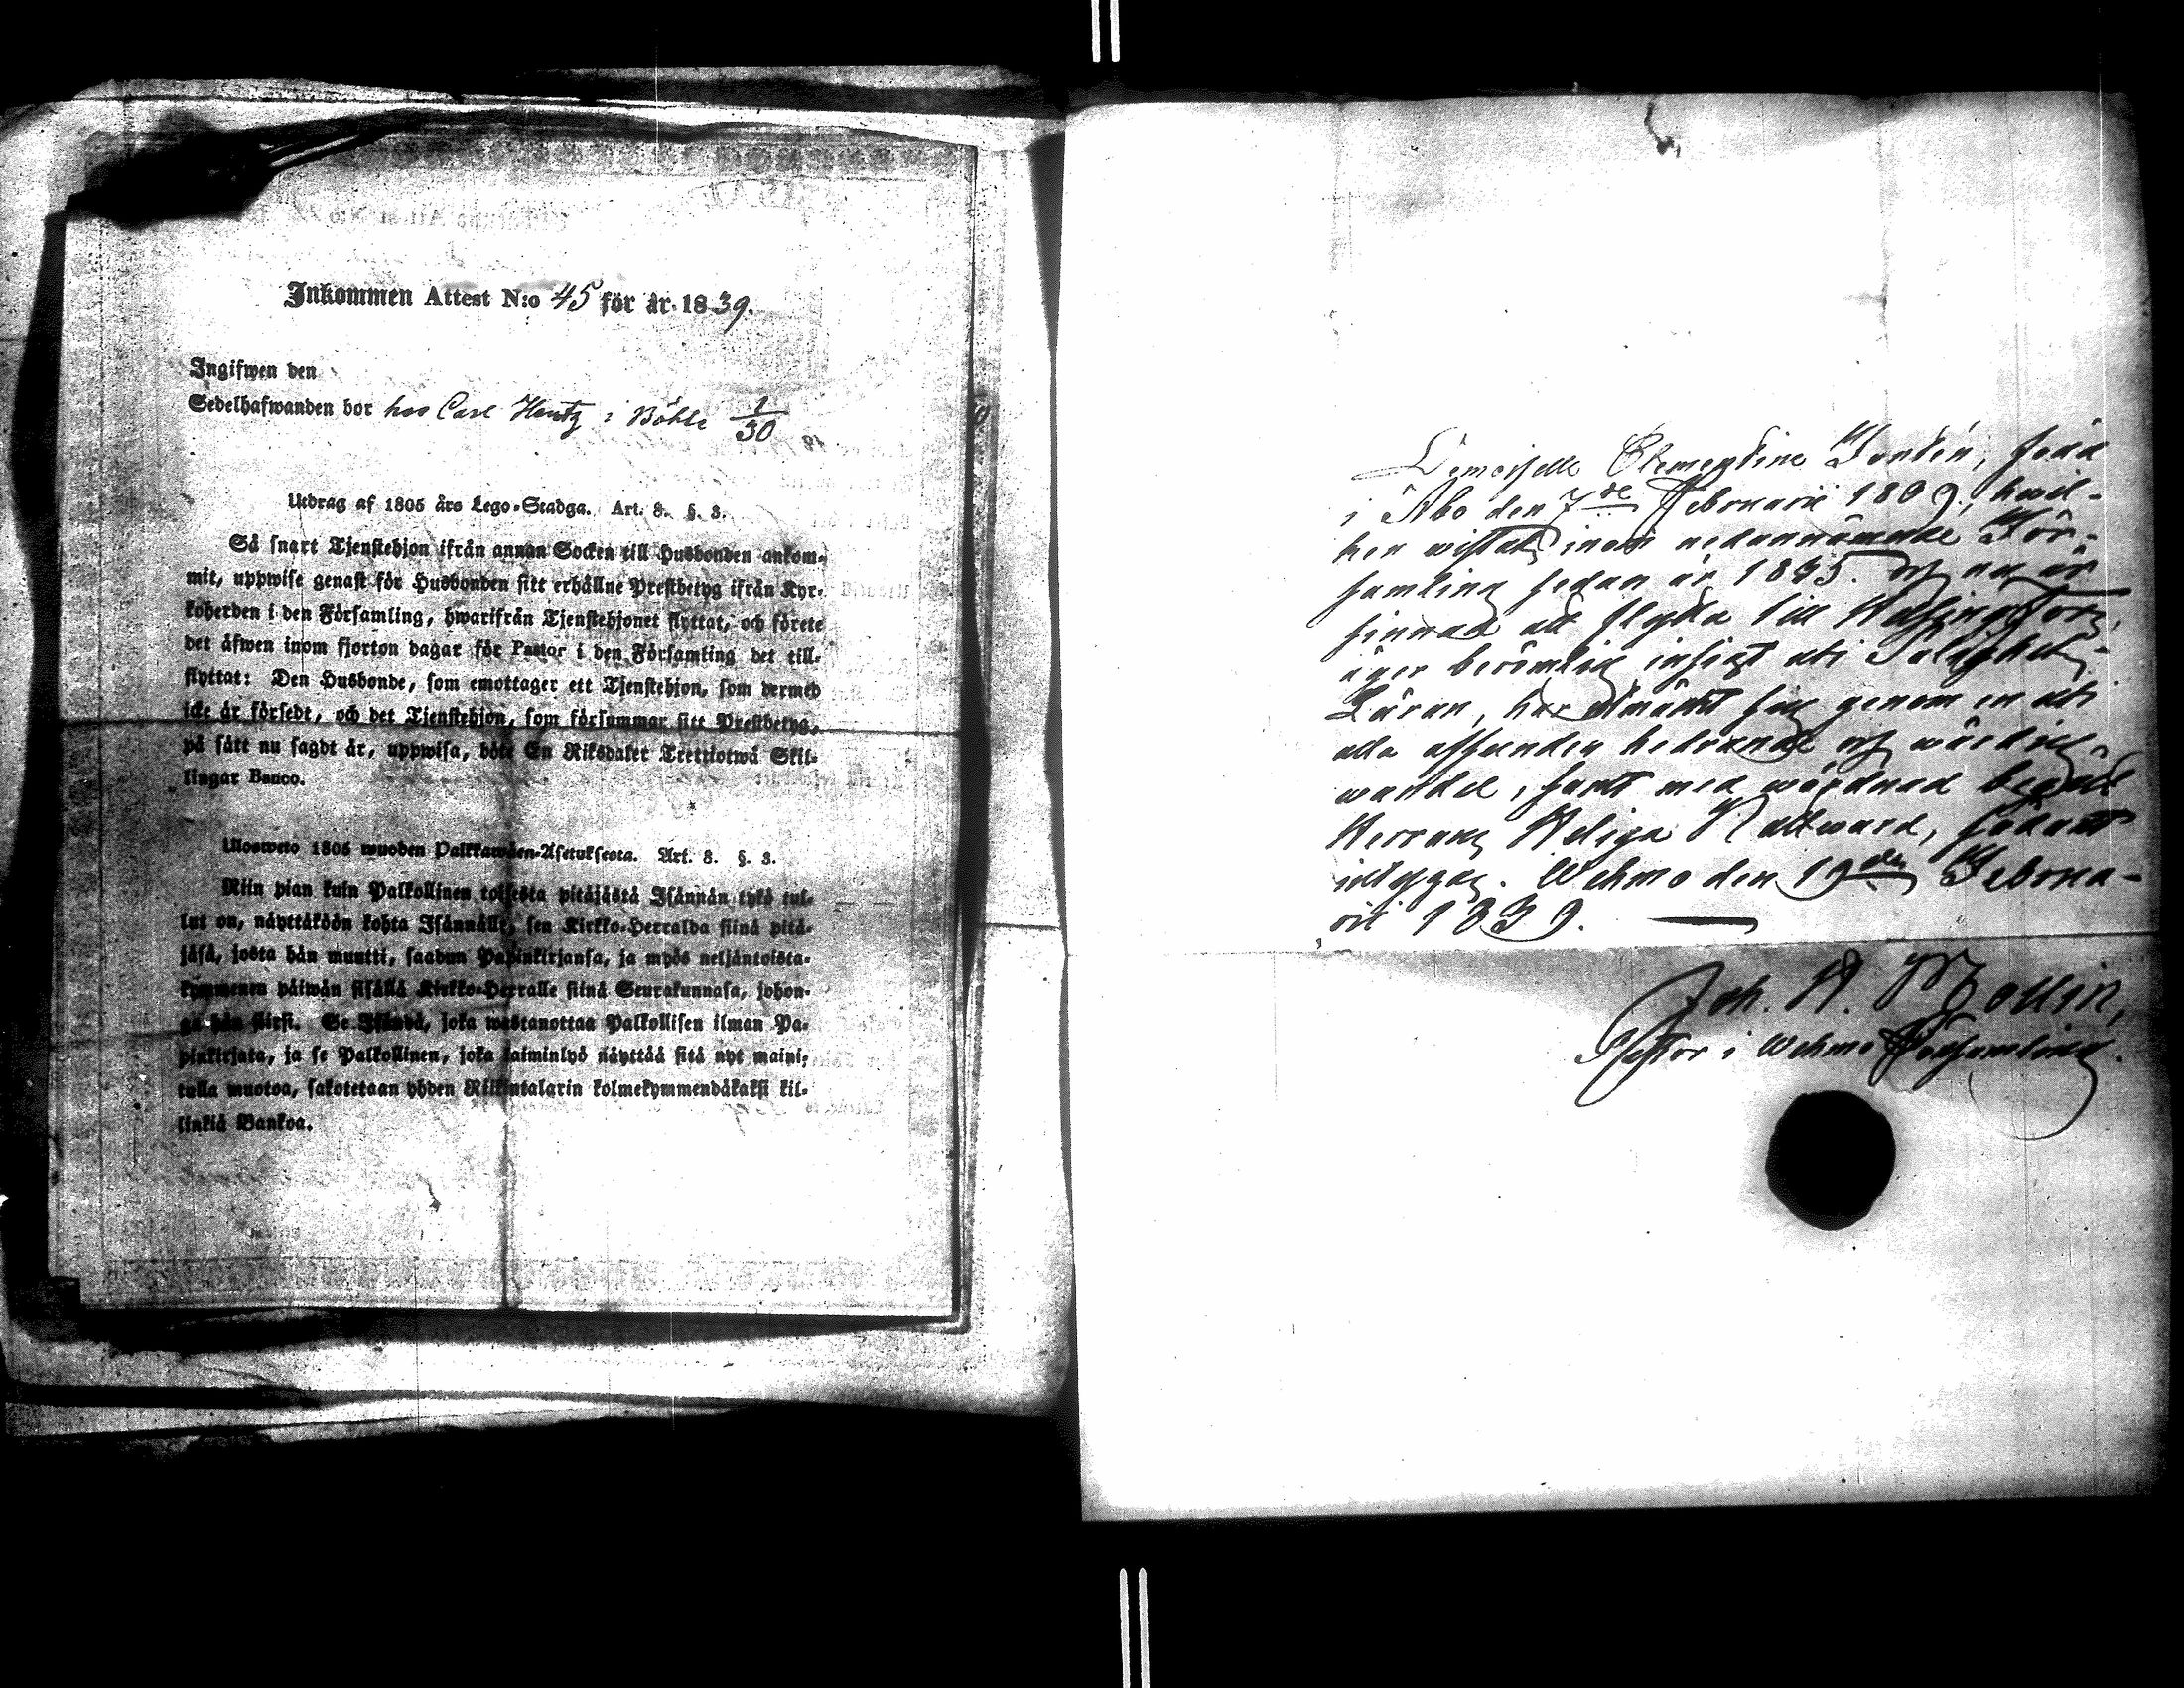 Inkommen Attest N:o 45 för år 1839.
Ingifwen den
Sedelhafwanden bor hos Carl Hentz i Böhle 1/30
Utdrag af 1805 års Lego-Stadga. Art. 8. §. 3.
Så snart Tjenstehjon ifrån annan Socken till Husbonden ankom-
mit, uppwise genast för Husbonden sitt erhållne Prestbetyg ifrån Kyr-
koherden i den Församling, hwarifrån Tjenstehjonet flyttat, och förete
det äfwen inom fjorton dagar för Pastor i den Församling det till-
flyttat: Den Husbonde, som emottager ett Tjenstehjon, som dermed
icke är försedt, och det Tjenstehjon, som försummar sitt Prestbetyg,
på sätt nu sagdt är, uppwisa, böte En Riksdaler Trettiotwå Skil-
lingar Banco.
Ulosweto 1805 wuoden Palkkawäen-Asetuksesta. Art. 8. §. 3.
Niin pian kuin Palkollinen toisesta pitäjästä Isännän tykö tul-
lut on, näyttäköön kohta Isännälle, sen Kirkko-Herralda siinä pitä-
jäsä, josta hän muutti, saadun Papinkirjansa, ja myös neljäntoista-
kymmenen päiwän sisällä Kirkko-Herralle siinä Seurakunnasa, johon-
ga hän siirsi. Se Isändä, joka wastanottaa Palkollisen ilman Pa-
pinkirjata, ja se Palkollinen, joka laiminlyö näyttää sitä nyt maini-
tulla muotoa, sakotetaan yhden Riikintalarin kolmekymmendäkaksi kil-
linkiä Bankoa.
Demoiselle Clementine Tondén, född
i Åbo den 7de Februarii 1809, hwil-
ken wistats inom nedannämnde För-
samling sedan år 1835. och nu är
sinnad att flytta till Helsingfors,
äger berömlig insigt uti Salighets-
Läran, har utmärkt sig genom en uti
alla afseenden hedrande och wärdig
wandel, samt med wördnad begått
Herrans Heliga Nattward, sådant
intygas. Wehmo den 19de Februa-
rii 1839.
Joh. H. Mollin,
Pastor i Wehmo Församling.